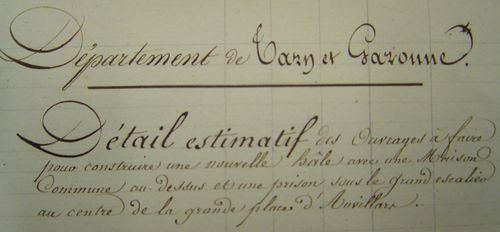 Département de Tarn et Garonne.
Détail estimatif des Ouvrages à faire
pour construire une nouvelle hâle avec une Maison
Commune au-dessus et une prison sous le grand escalier
au centre de la grande place d'Auvillars.